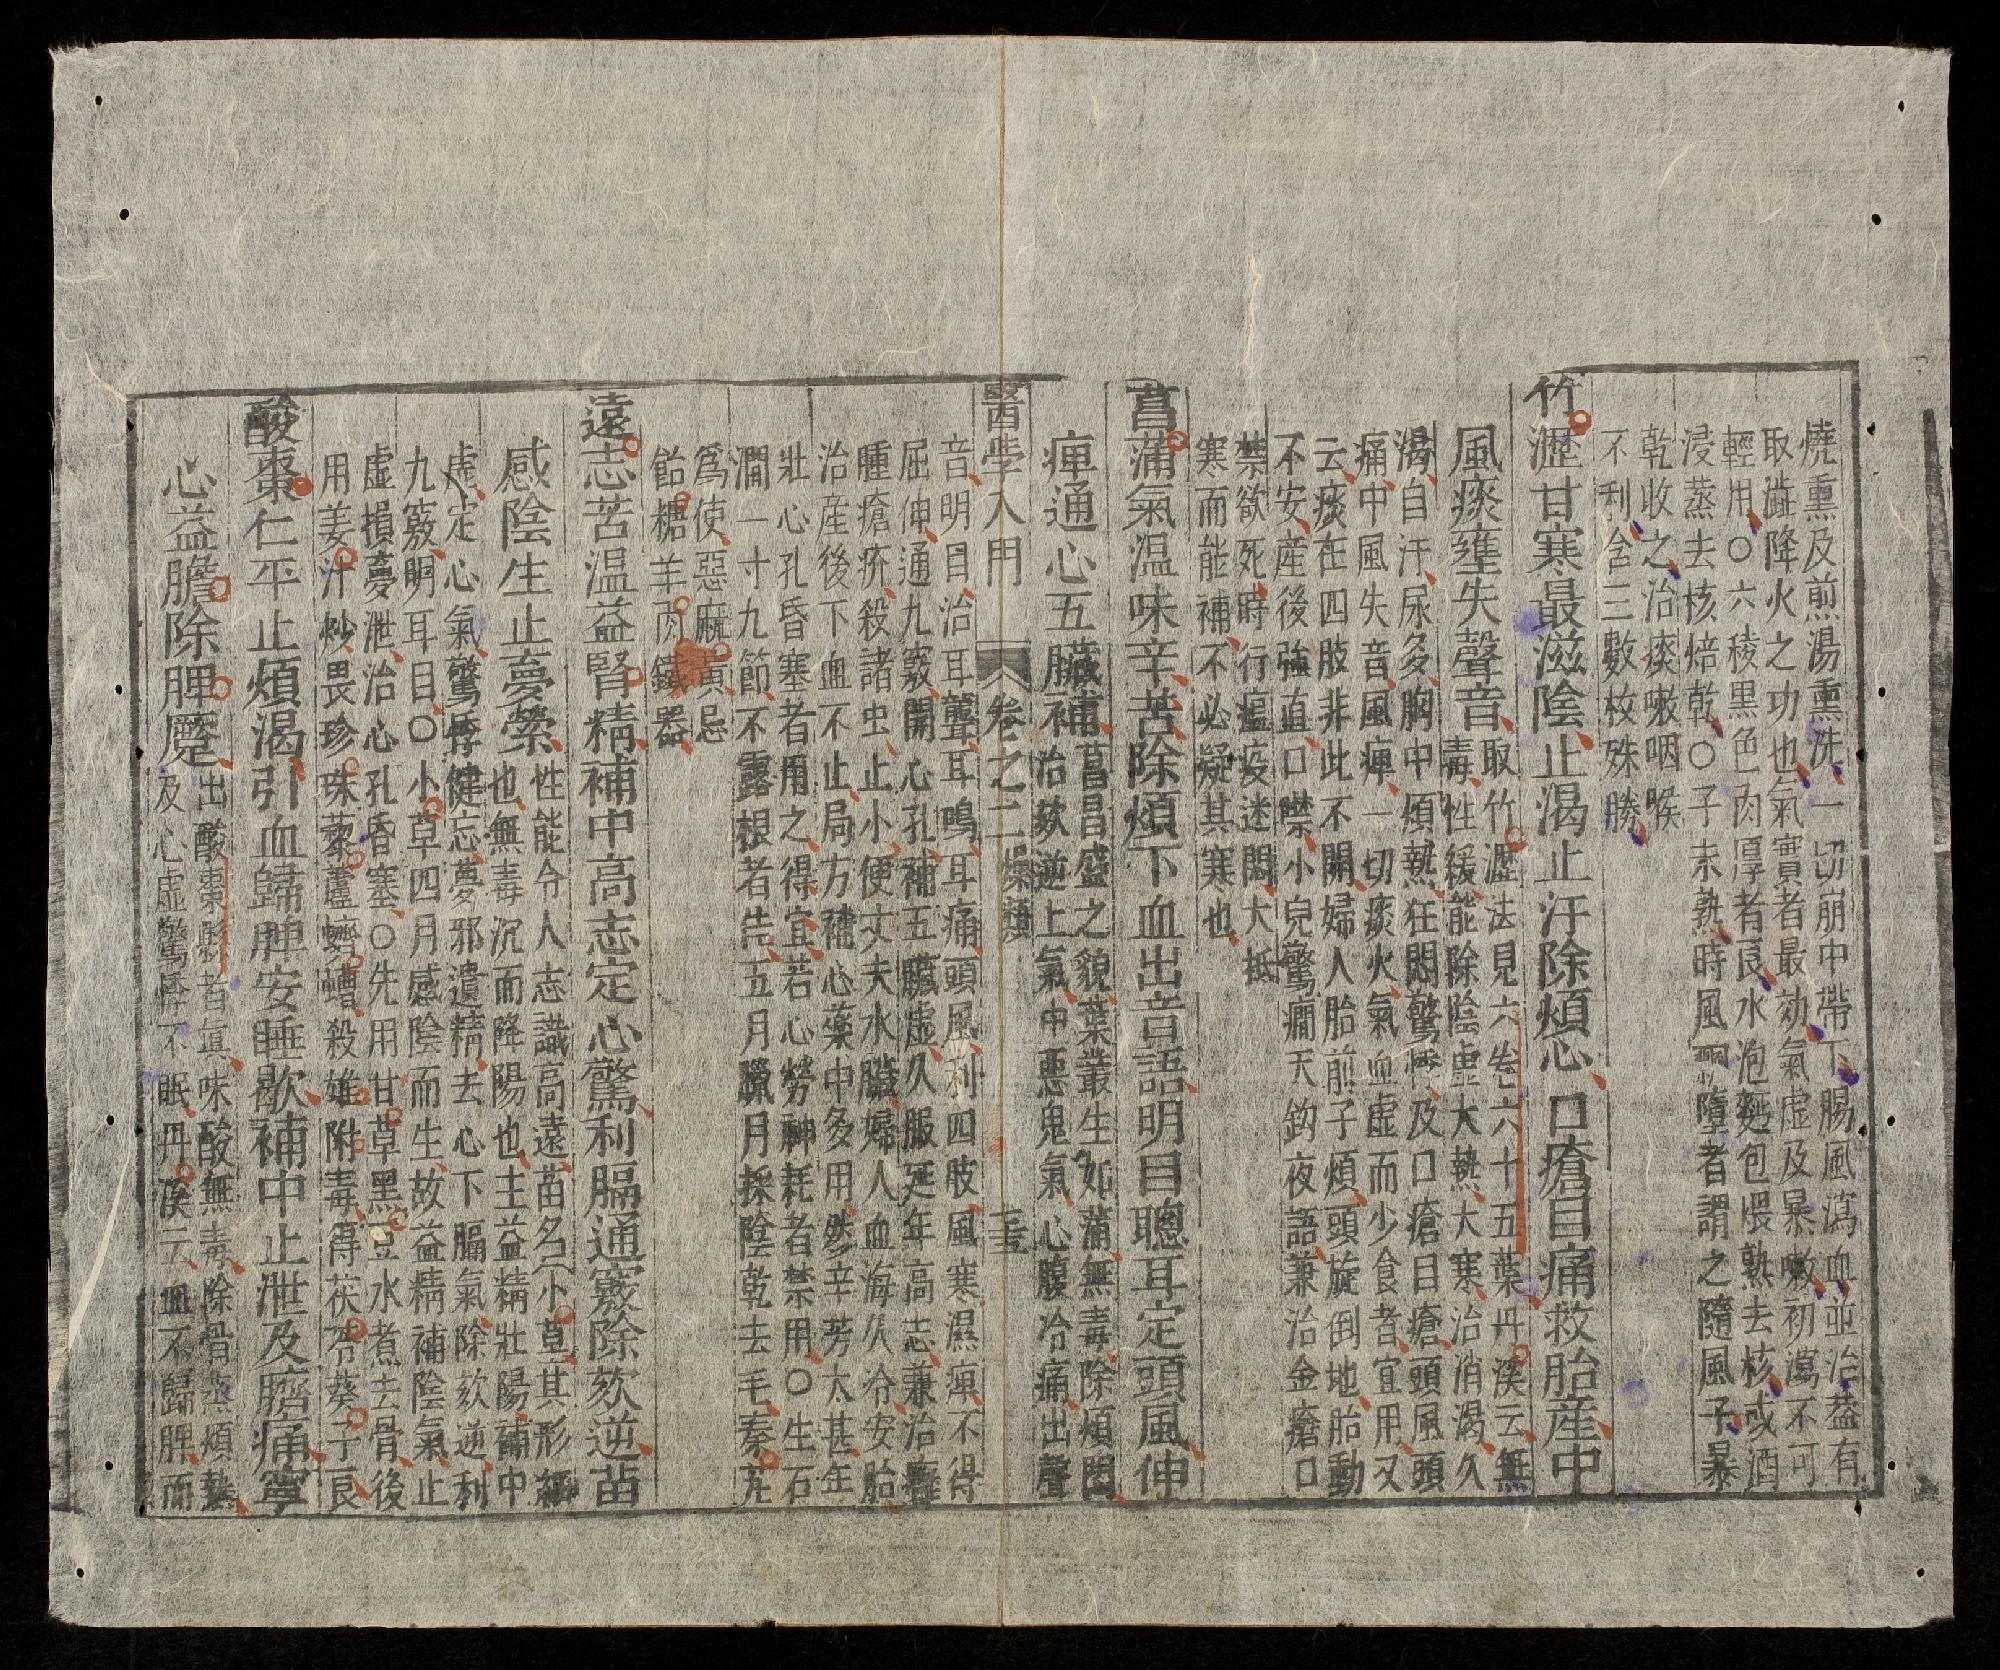 燒熏及煎湯熏洗一切崩中帶下腸風瀉血並治蓋有
取澁降火之功也氣實者最効氣虛及暴嗽初瀉不可
輕用○六稜黑色肉厚者良水泡麪包煨熟去核或酒
浸蒸去核焙乾○子未熟時風飄墮者謂之隨風子暴
乾收之治痰嗽咽喉
不利含三數枚殊勝
竹瀝甘寒最滋陰止渴止汗除煩心口瘡目痛救胎産中
風痰壅失聲音
取竹瀝法見六卷六十五葉丹溪云無
毒性緩能除陰虛大熱大寒治消渴久
渴自汗尿多胸中煩熱狂悶驚悸及口瘡目瘡頭風頭
痛中風失音風痺一切痰火氣血虛而少食者宜用又
云痰在四肢非此不開婦人胎前子煩頭旋倒地胎動
不安産後強直口噤小兒驚癎天鈎夜語兼治金瘡口
禁欲死時行瘟疫迷悶大抵
寒而能補不必疑其寒也
菖蒲氣温味辛苦除煩下血出音語明目聰耳定頭風伸
痺通心五臟補
菖昌盛之貌葉叢生如蒲無毒除煩悶
治欬逆上氣中惡鬼氣心腹冷痛出聲
醫學入門 卷之二 燥類 三五
音明目治耳聾耳鳴耳痛頭風利四肢風寒濕痺不得
屈伸通九竅開心孔補五臟虛久服延年高志兼治癰
腫瘡疥殺諸虫止小便丈夫水臟婦人血海久冷安胎
治産後下血不止局方補心藥中多用然辛芳太甚年
壯心孔昏塞者用之得宜若心勞神耗者禁用○生石
澗一寸九節不露根者佳五月臘月採陰乾去毛秦艽
爲使惡麻黃忌
飴糖羊肉鐵器
遠志苦温益腎精補中高志定心驚利膈通竅除欬逆苗
感陰生止夢縈
性能令人志識高遠苗名小草其形細
也無毒沉而降陽也主益精壯陽補中
虛定心氣驚悸健忘夢邪遺精去心下膈氣除欬逆利
九竅明耳目○小草四月感陰而生故益精補陰氣止
虛損夢泄治心孔昏塞○先用甘草黑豆水煮去骨後
用姜汁炒畏珍珠藜蘆蠐螬殺雄附毒得茯苓葵子良
酸棗仁平止煩渴引血歸脾安睡歇補中止泄及臍痛寧
心益膽除脾蹷
出酸棗縣者眞味酸無毒除骨蒸煩熱
及心虛驚悸不眠丹溪云血不歸脾而